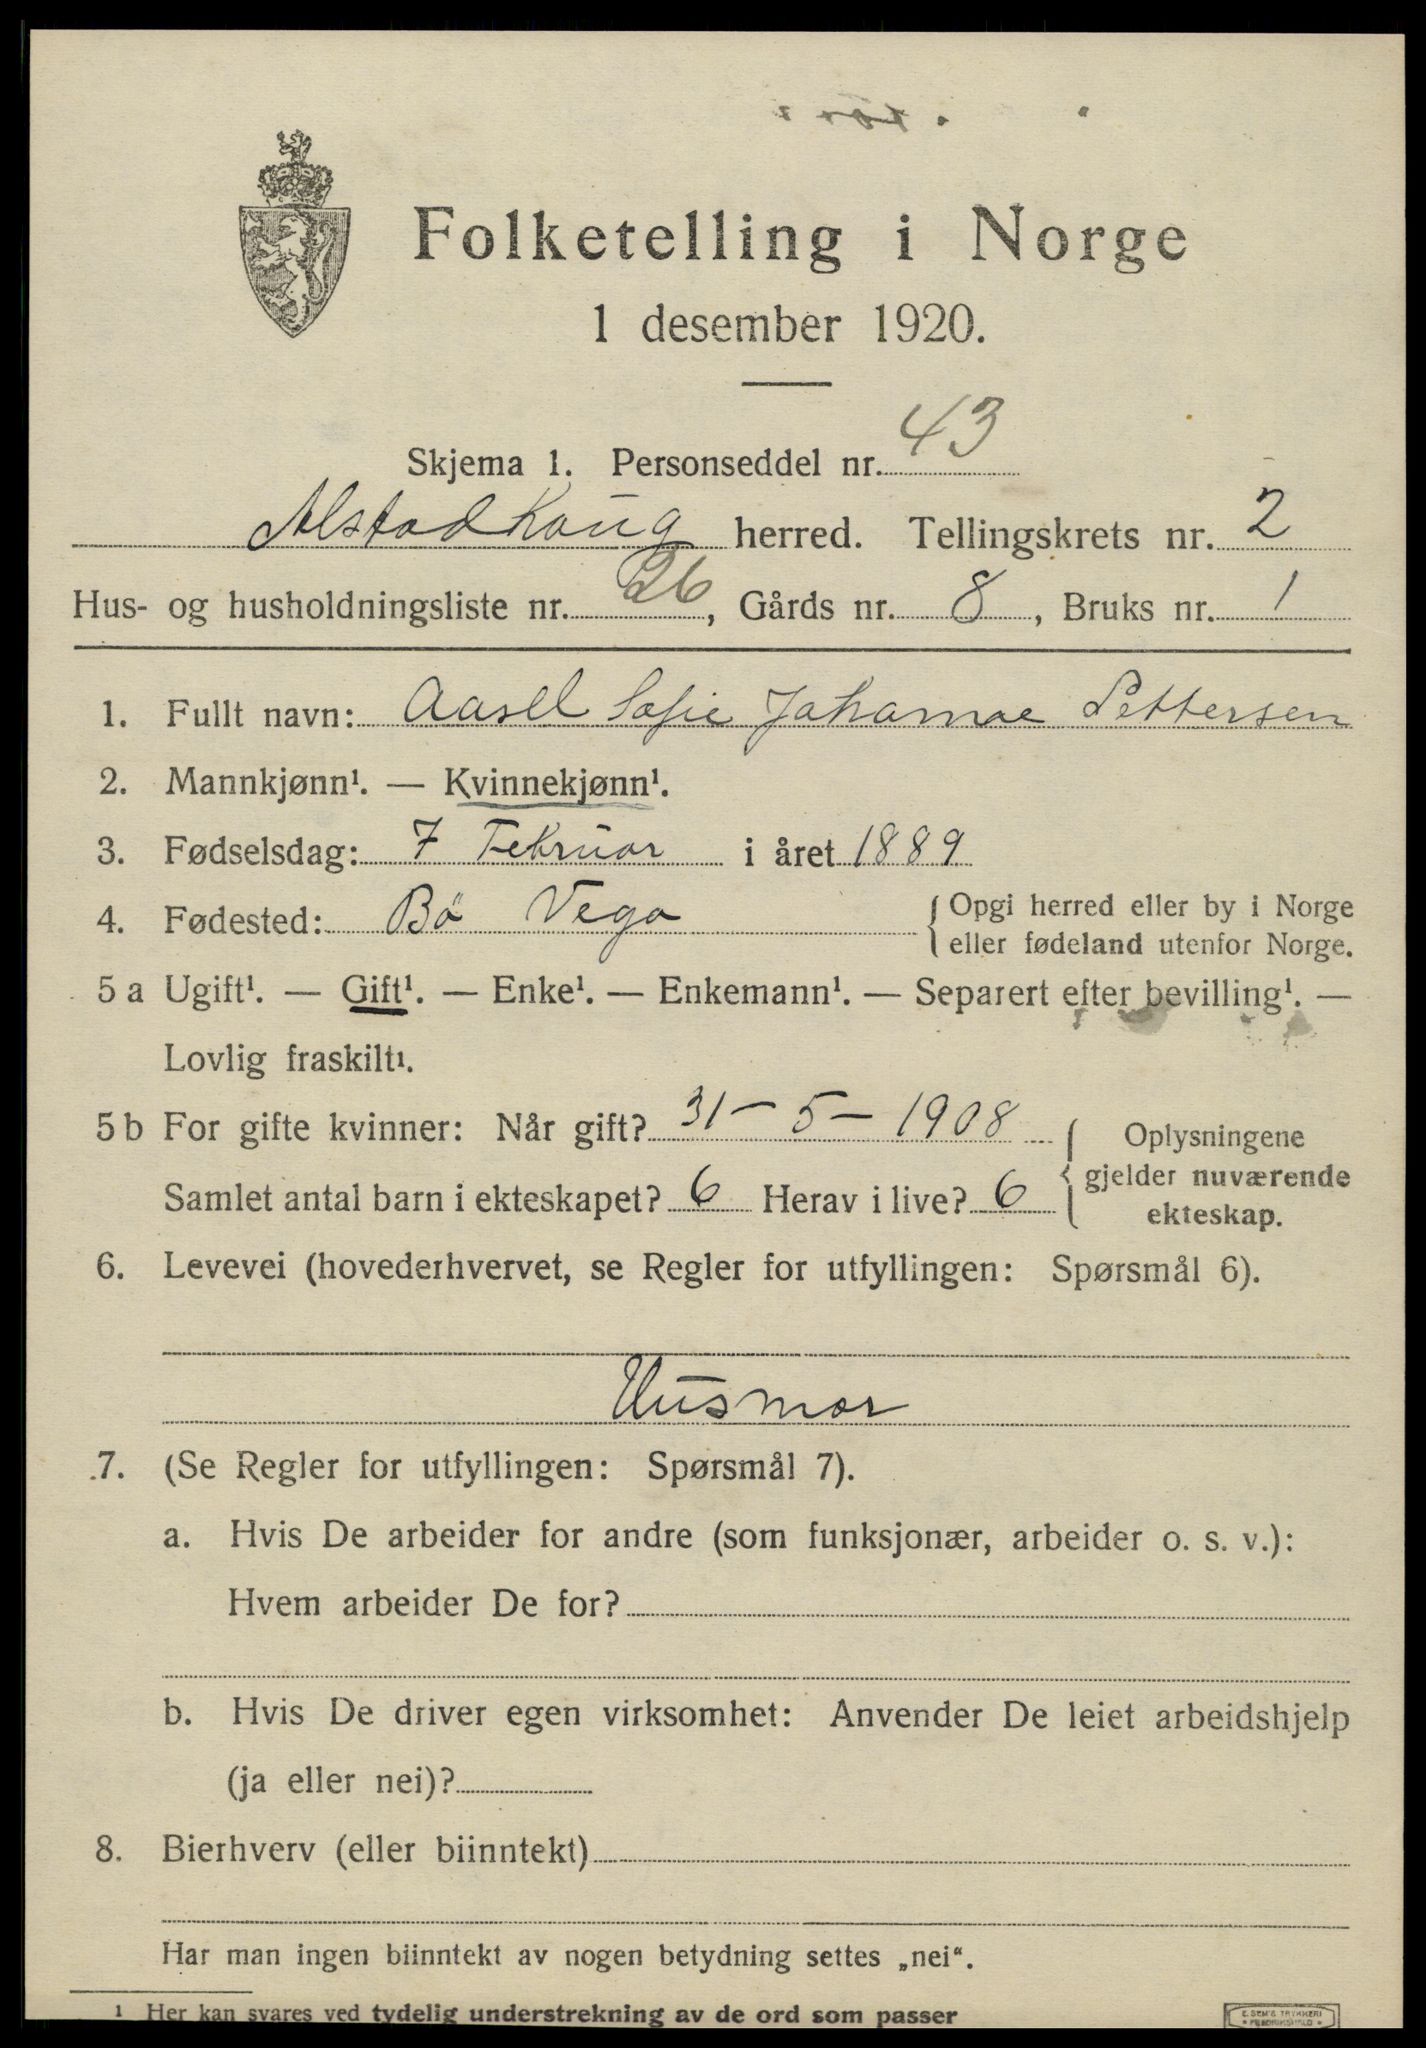 Folketelling i Norge
1 desember 1920.
Skjema 1. Personseddel nr. 43
Alstadhoug herred. Tellingskrets nr. 2
Hus- og husholdningsliste nr. 26, Gårds nr. 8, Bruks nr. 1
1. Fullt navn: Aasel Sofie Johanne Pettersen
2. Mannkjønn¹. — Kvinnekjønn¹.
3. Fødselsdag: 7 Februar i året 1889
4. Fødested: Bö Vega
{ Opgi herred eller by i Norge
eller fødeland utenfor Norge.
5 a Ugift¹. — Gift¹. — Enke¹. — Enkemann¹. — Separert efter bevilling¹. —
Lovlig fraskilt¹.
5 b For gifte kvinner: Når gift? 31-5-1908
Samlet antal barn i ekteskapet? 6 Herav i live? 6
{ Oplysningene
gjelder nuværende
ekteskap.
6. Levevei (hovederhvervet, se Regler for utfyllingen: Spørsmål 6).
Husmor
7. (Se Regler for utfyllingen: Spørsmål 7).
a. Hvis De arbeider for andre (som funksjonær, arbeider o. s. v.):
Hvem arbeider De for?
b. Hvis De driver egen virksomhet: Anvender De leiet arbeidshjelp
(ja eller nei)?
8. Bierhverv (eller biinntekt)
Har man ingen biinntekt av nogen betydning settes „nei“.
¹ Her kan svares ved tydelig understrekning av de ord som passer
E. SEM'S TRYKKERI
• FREDRIKSHALD •